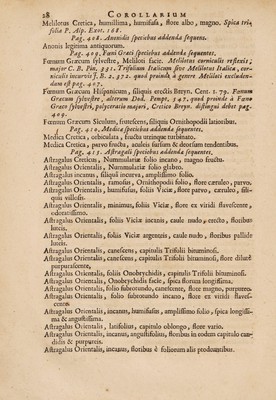 28 COROLLARIUM
Melilotus Cretica, humillima, humifusa, flore albo, magno. Spica tri-
folia P. Alp. Exot. 168.
Pag. 408. Anonidis speciebus addenda sequens.
Anonis legitima antiquorum.
Pag. 409. Fœni Græci speciebus addenda sequentes.
Fœnum Græcum sylvestre, Meliloti facie. Melilotus corniculis reflexis;
major C. B. Pin. 331. Trifolium Italicum sive Melilotus Italica, cor-
niculis incurvis J. B. 2. 372. quod proinde à genere Meliloti excluden-
dum est pag. 407.
Fœnum Græcum Hispanicum, siliquis erectis Breyn. Cent. 1. 79. Fœnum
Græcum sylvestre, alterum Dod. Pempt. 547. quod proinde à Fœno
Græco sylvestri, polyceratio majori, Cretico Breyn. distingui debet pag.
409.
Fœnum Græcum Siculum, frutescens, siliquis Ornithopodii latioribus.
Pag. 410. Medicæ speciebus addenda sequentes.
Medica Cretica, orbiculata, fructu utrinque turbinato.
Medica Cretica, parvo fructu, aculeis sursum & deorsum tendentibus.
Pag. 415. Astragali speciebus addenda sequentes.
Astragalus Creticus, Nummulariæ folio incano, magno fructu.
Astragalus Orientalis, Nummulariæ folio glabro.
Astragalus incanus, siliqua incurva, amplissimo folio.
Astragalus Orientalis, ramosus, Ornithopodii folio, flore cæruleo, parvo.
Astragalus Orientalis, humifusus, foliis Viciæ, flore parvo, cæruleo, sili-
quis villosis.
Astragalus Orientalis, minimus, foliis Viciæ, flore ex viridi flavescente,
odoratissimo.
Astragalus Orientalis, foliis Viciæ incanis, caule nudo, erecto, floribus
luteis.
Astragalus Orientalis, foliis Viciæ argenteis, caule nudo, floribus pallidè
luteis.
Astragalus Orientalis, canescens, capitulis Trifolii bituminosi.
Astragalus Orientalis, canescens, capitulis Trifolii bituminosi, flore dilutè
purpurascente.
Astragalus Orientalis, foliis Onobrychidis, capitulis Trifolii bituminosi.
Astragalus Orientalis, Onobrychidis facie, spica florum longissima.
Astragalus Orientalis, folio subrotundo, canescente, flore magno, purpureo.
Astragalus Orientalis, folio subrotundo incano, flore ex viridi flaves-
cente.
Astragalus Orientalis, incanus, humifusus, amplissimo folio, spica longis-
sima & angustissima.
Astragalus Orientalis, latifolius, capitulo oblongo, flore vario.
Astragalus Orientalis, incanus, angustifolius, floribus in eodem capitulo can-
didis & purpureis.
Astragalus Orientalis, incanus, floribus è foliorum alis prodeuntibus.